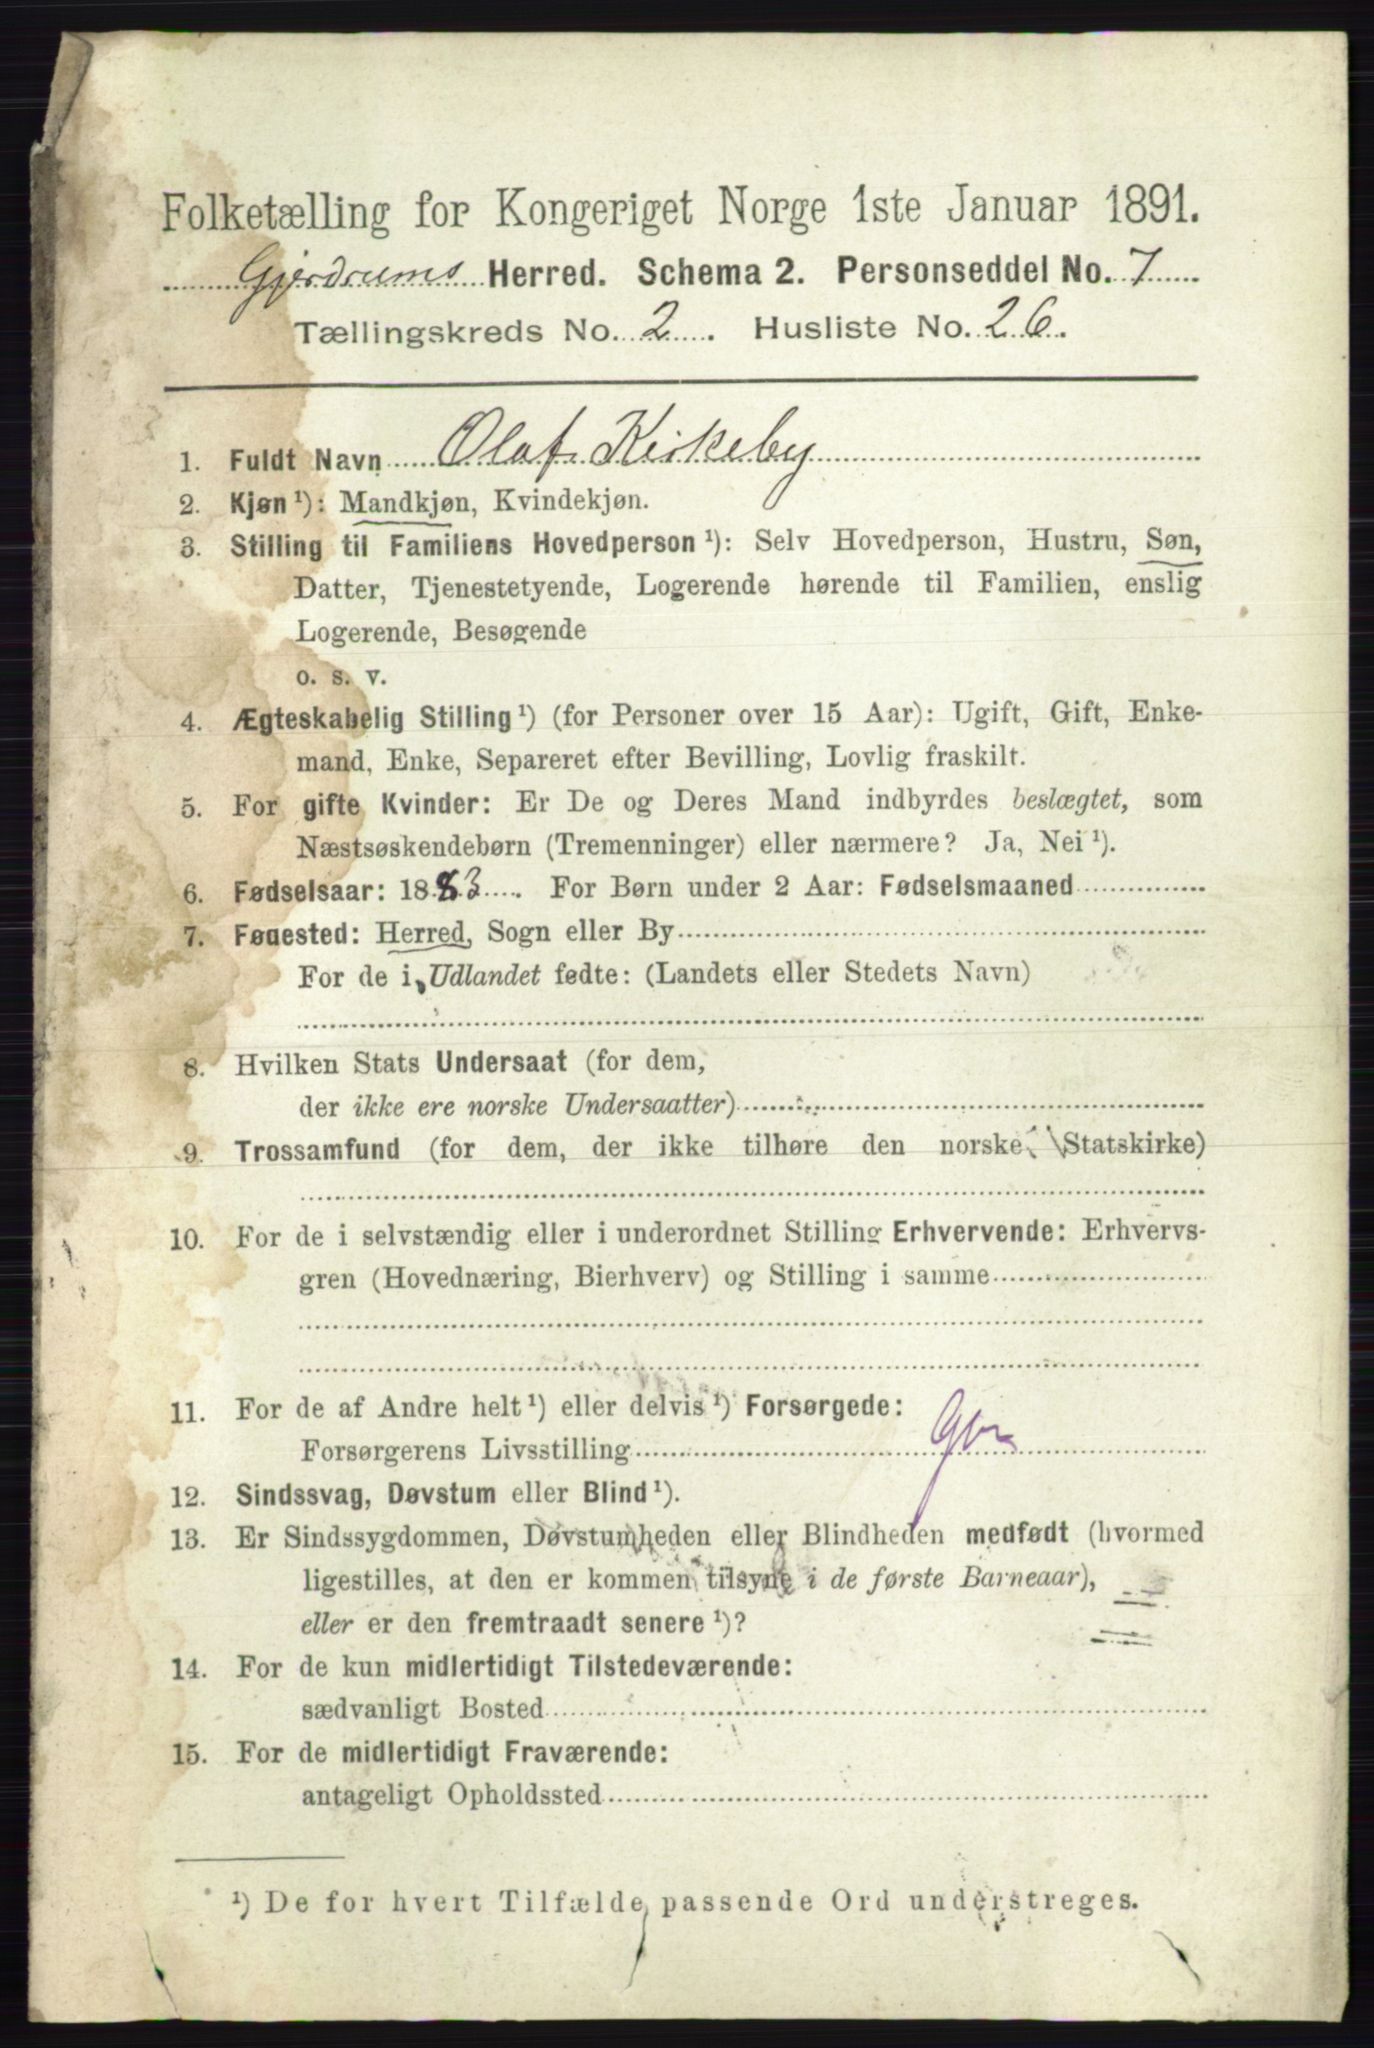 Folketælling for Kongeriget Norge 1ste Januar 1891.
Gjerdrums Herred. Schema 2. Personseddel No. 7
Tællingskreds No. 2. Husliste No. 26.
1. Fuldt Navn Olaf Kirkeby
2. Kjøn ¹): Mandkjøn, Kvindekjøn.
3. Stilling til Familiens Hovedperson ¹): Selv Hovedperson, Hustru, Søn,
Datter, Tjenestetyende, Logerende hørende til Familien, enslig
Logerende, Besøgende
o. s. v.
4. Ægteskabelig Stilling ¹) (for Personer over 15 Aar): Ugift, Gift, Enke-
mand, Enke, Separeret efter Bevilling, Lovlig fraskilt.
5. For gifte Kvinder: Er De og Deres Mand indbyrdes beslægtet, som
Næstsøskendebørn (Tremenninger) eller nærmere? Ja, Nei ¹).
6. Fødselsaar: 1883. For Børn under 2 Aar: Fødselsmaaned
7. Fødested: Herred, Sogn eller By
For de i Udlandet fødte: (Landets eller Stedets Navn)
8. Hvilken Stats Undersaat (for dem,
der ikke ere norske Undersaatter)
9. Trossamfund (for dem, der ikke tilhøre den norske Statskirke)
10. For de i selvstændig eller i underordnet Stilling Erhvervende: Erhvervs-
gren (Hovednæring, Bierhverv) og Stilling i samme
11. For de af Andre helt ¹) eller delvis ¹) Forsørgede:
Forsørgerens Livsstilling
12. Sindssvag, Døvstum eller Blind ¹).
13. Er Sindssygdommen, Døvstumheden eller Blindheden medfødt (hvormed
ligestilles, at den er kommen tilsyne i de første Barneaar),
eller er den fremtraadt senere ¹)?
14. For de kun midlertidigt Tilstedeværende:
sædvanligt Bosted
15. For de midlertidigt Fraværende:
antageligt Opholdssted
¹) De for hvert Tilfælde passende Ord understreges.